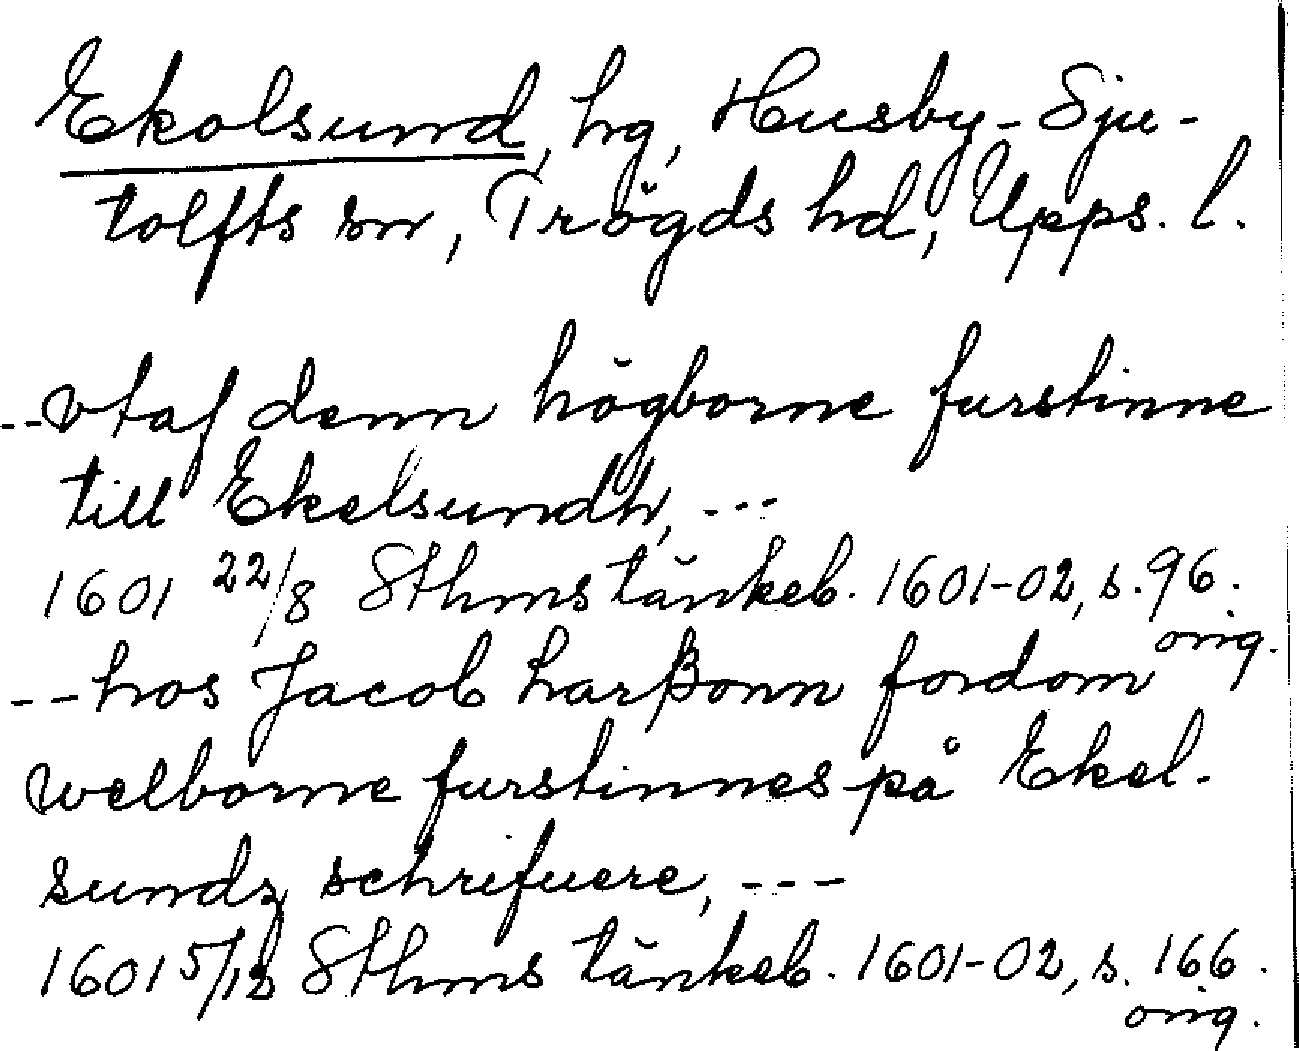 Ekolsund, hg, Husby-Sju-
tolfts sn, Trögds hd, Upps. l.
--vtaf denn högborne furstinne
till Ekelsundh, ---
1601 22/8 Sthms tänkeb. 1601-02, s. 96.
orig.
--hos Jacob harßonn fordom
welborne furstinnes på Ekel-
sundz schrifuere, ---
1601 5/12 Sthms tänkeb. 1601-02, s. 166.
orig.